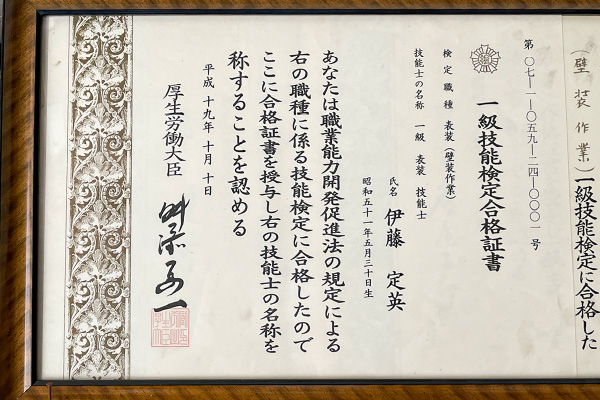 （壁装作業）一級技能検定に合格した
第〇七―一―〇五九―二四―〇〇〇一号
一級技能検定合格証書
検定職種 表装（壁装作業）
技能士の名称 一級 表装 技能士
氏名 伊藤 定英
昭和五十一年五月三十日生
あなたは職業能力開発促進法の規定による
右の職種に係る技能検定に合格したので
ここに合格証書を授与し右の技能士の名称を
称することを認める
平成 十九年 十月 十日
厚生労働大臣